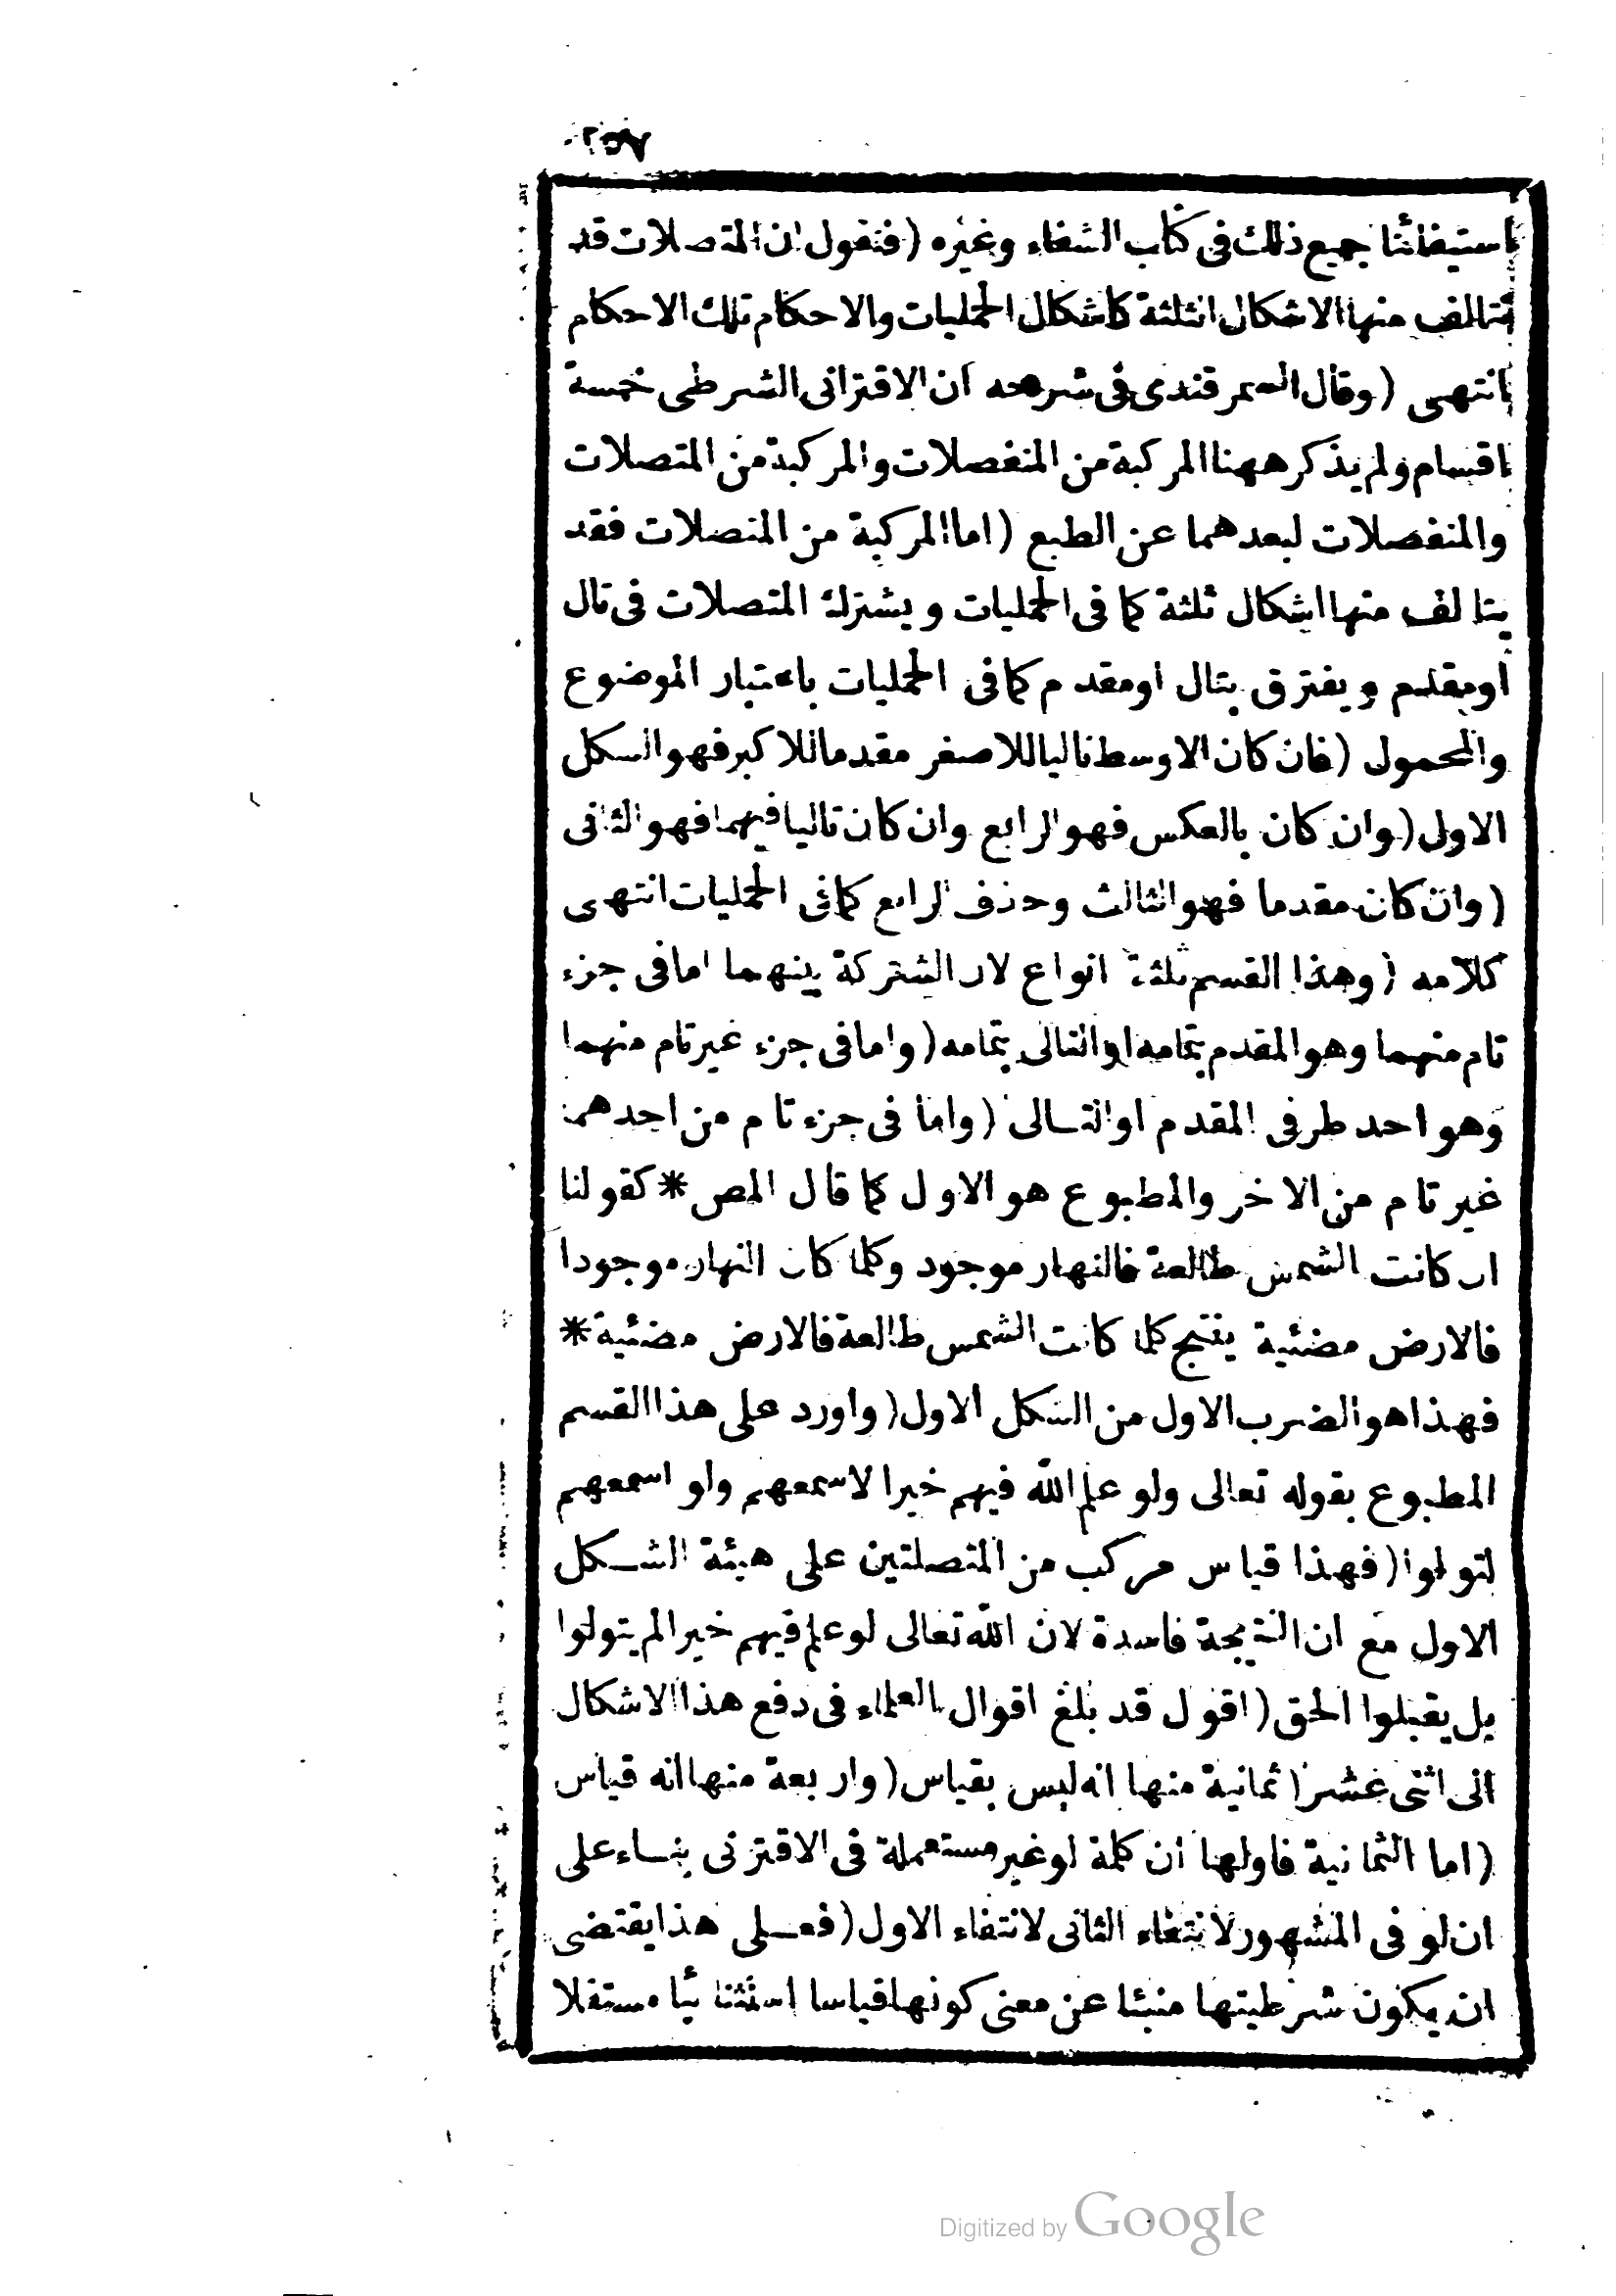 ٢٥٧
استيفائنا جميع ذلك فى كتاب الشفاء وغيره (فنقول ان المتصلات قد
تتالف منها الاشكال الثلثة كاشكال الحمليات والاحكام تلك الاحكام
انتهى (وقال السمرقندى فى شرحه ان الاقترانى الشرطى خمسة
اقسام ولم يذكر ههنا المركبة من المنفصلات والمركبة من المتصلات
والمنفصلات لبعدهما عن الطبع (اما المركبة من المتصلات فقد
يتالف منها اشكال ثلثة كما فى الحمليات ويشترك المتصلات فى تال
اومقدم ويفترق بتال اومقدم كما فى الحمليات باعتبار الموضوع
والمحمول (فان كان الاوسط تاليا للاصغر مقدما للاكبر فهو الشكل
الاول (وان كان بالعكس فهو الرابع وان كان تاليا فيهما فهو الثانى
(وان كان مقدما فهو الثالث وحذف الرابع كما فى الحمليات انتهى
كلامه (وهذا القسم ثلثة انواع لان الشركة بينهما اما فى جزء
تام منهما وهو المقدم بتمامه او التالى بتمامه (واما فى جزء غير تام منهما
وهو احد طرفى المقدم او التالى (واما فى جزء تام من احدهما
غير تام من الاخر والمطبوع هو الاول كما قال المص * كقولنا
ان كانت الشمس طالعة فالنهار موجود وكلما كان النهار موجودا
فالارض مضئية ينتج كلما كانت الشمس طالعة فالارض مضئية *
فهذا هو الضرب الاول من الشكل الاول (واورد على هذا القسم
المطبوع بقوله تعالى ولو علم الله فيهم خيرا لاسمعهم ولو اسمعهم
لتولوا (فهذا قياس مركب من المتصلتين على هيئة الشكل
الاول مع ان النتيجة فاسدة لان الله تعالى لو علم فيهم خيرا لم يتولوا
بل يقبلوا الحق (اقول قد بلغ اقوال العلماء فى دفع هذا الاشكال
الى اثنى عشر (ثمانية منها انه ليس بقياس (واربعة منها انه قياس
(اما الثمانية فاولها ان كلمة لو غير مستعملة فى الاقترنى بناء على
ان لو فى المشهور لانتفاء الثانى لانتفاء الاول (فعلى هذا يقتضى
ان يكون شرطيتها منبئا عن معنى كونها قياسا استثنائيا مستقلا
Digitized by Google